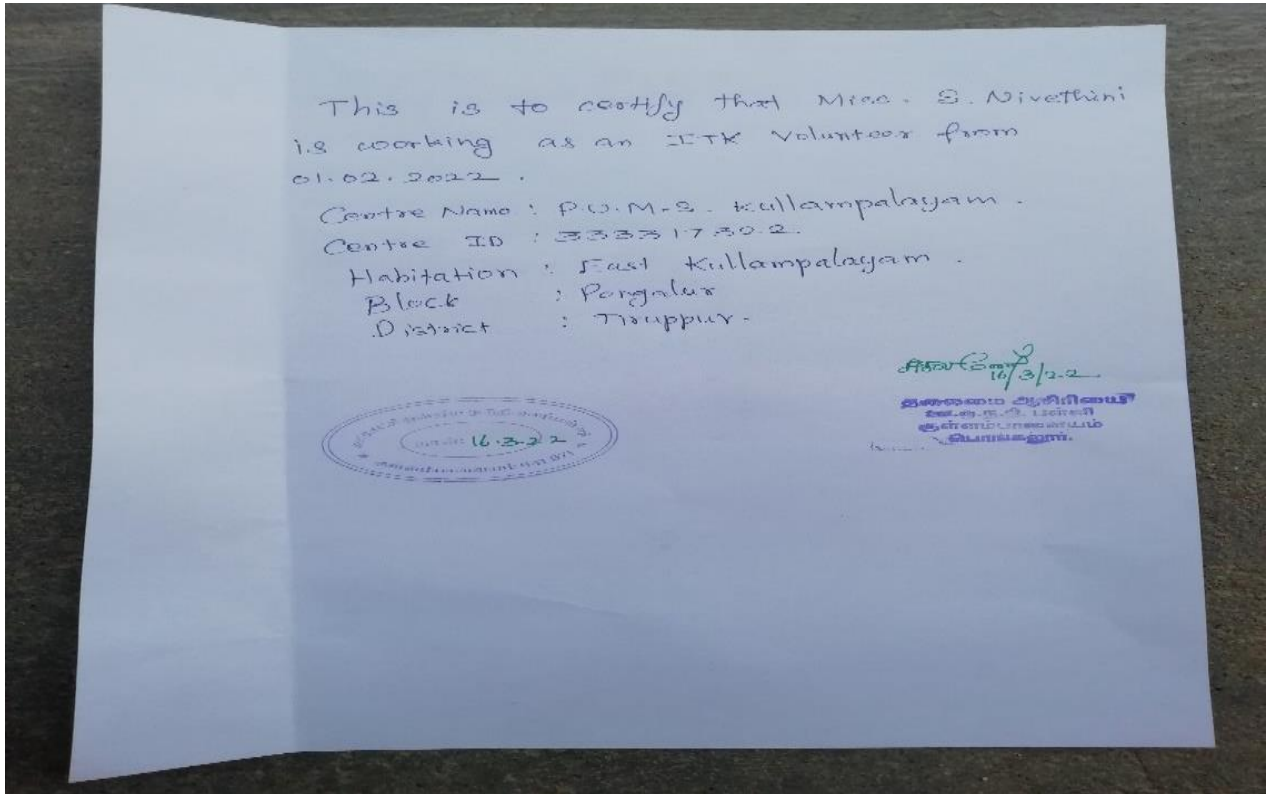 This is to certify that Miss. S. Nivethini
is working as an ITK Volunteer from
01.02.2022.
Centre Name : P.U.M.S. Kullampalayam.
Centre ID : 333317302.
Habitation : East Kullampalayam.
Block : Pongalur
District : Tiruppur.
16/3/22
தலைமை ஆசிரியை
ஊ.ஒ.ந.நி. பள்ளி
குள்ளம்பாளையம்
பொங்கலூர்.
16.3.22